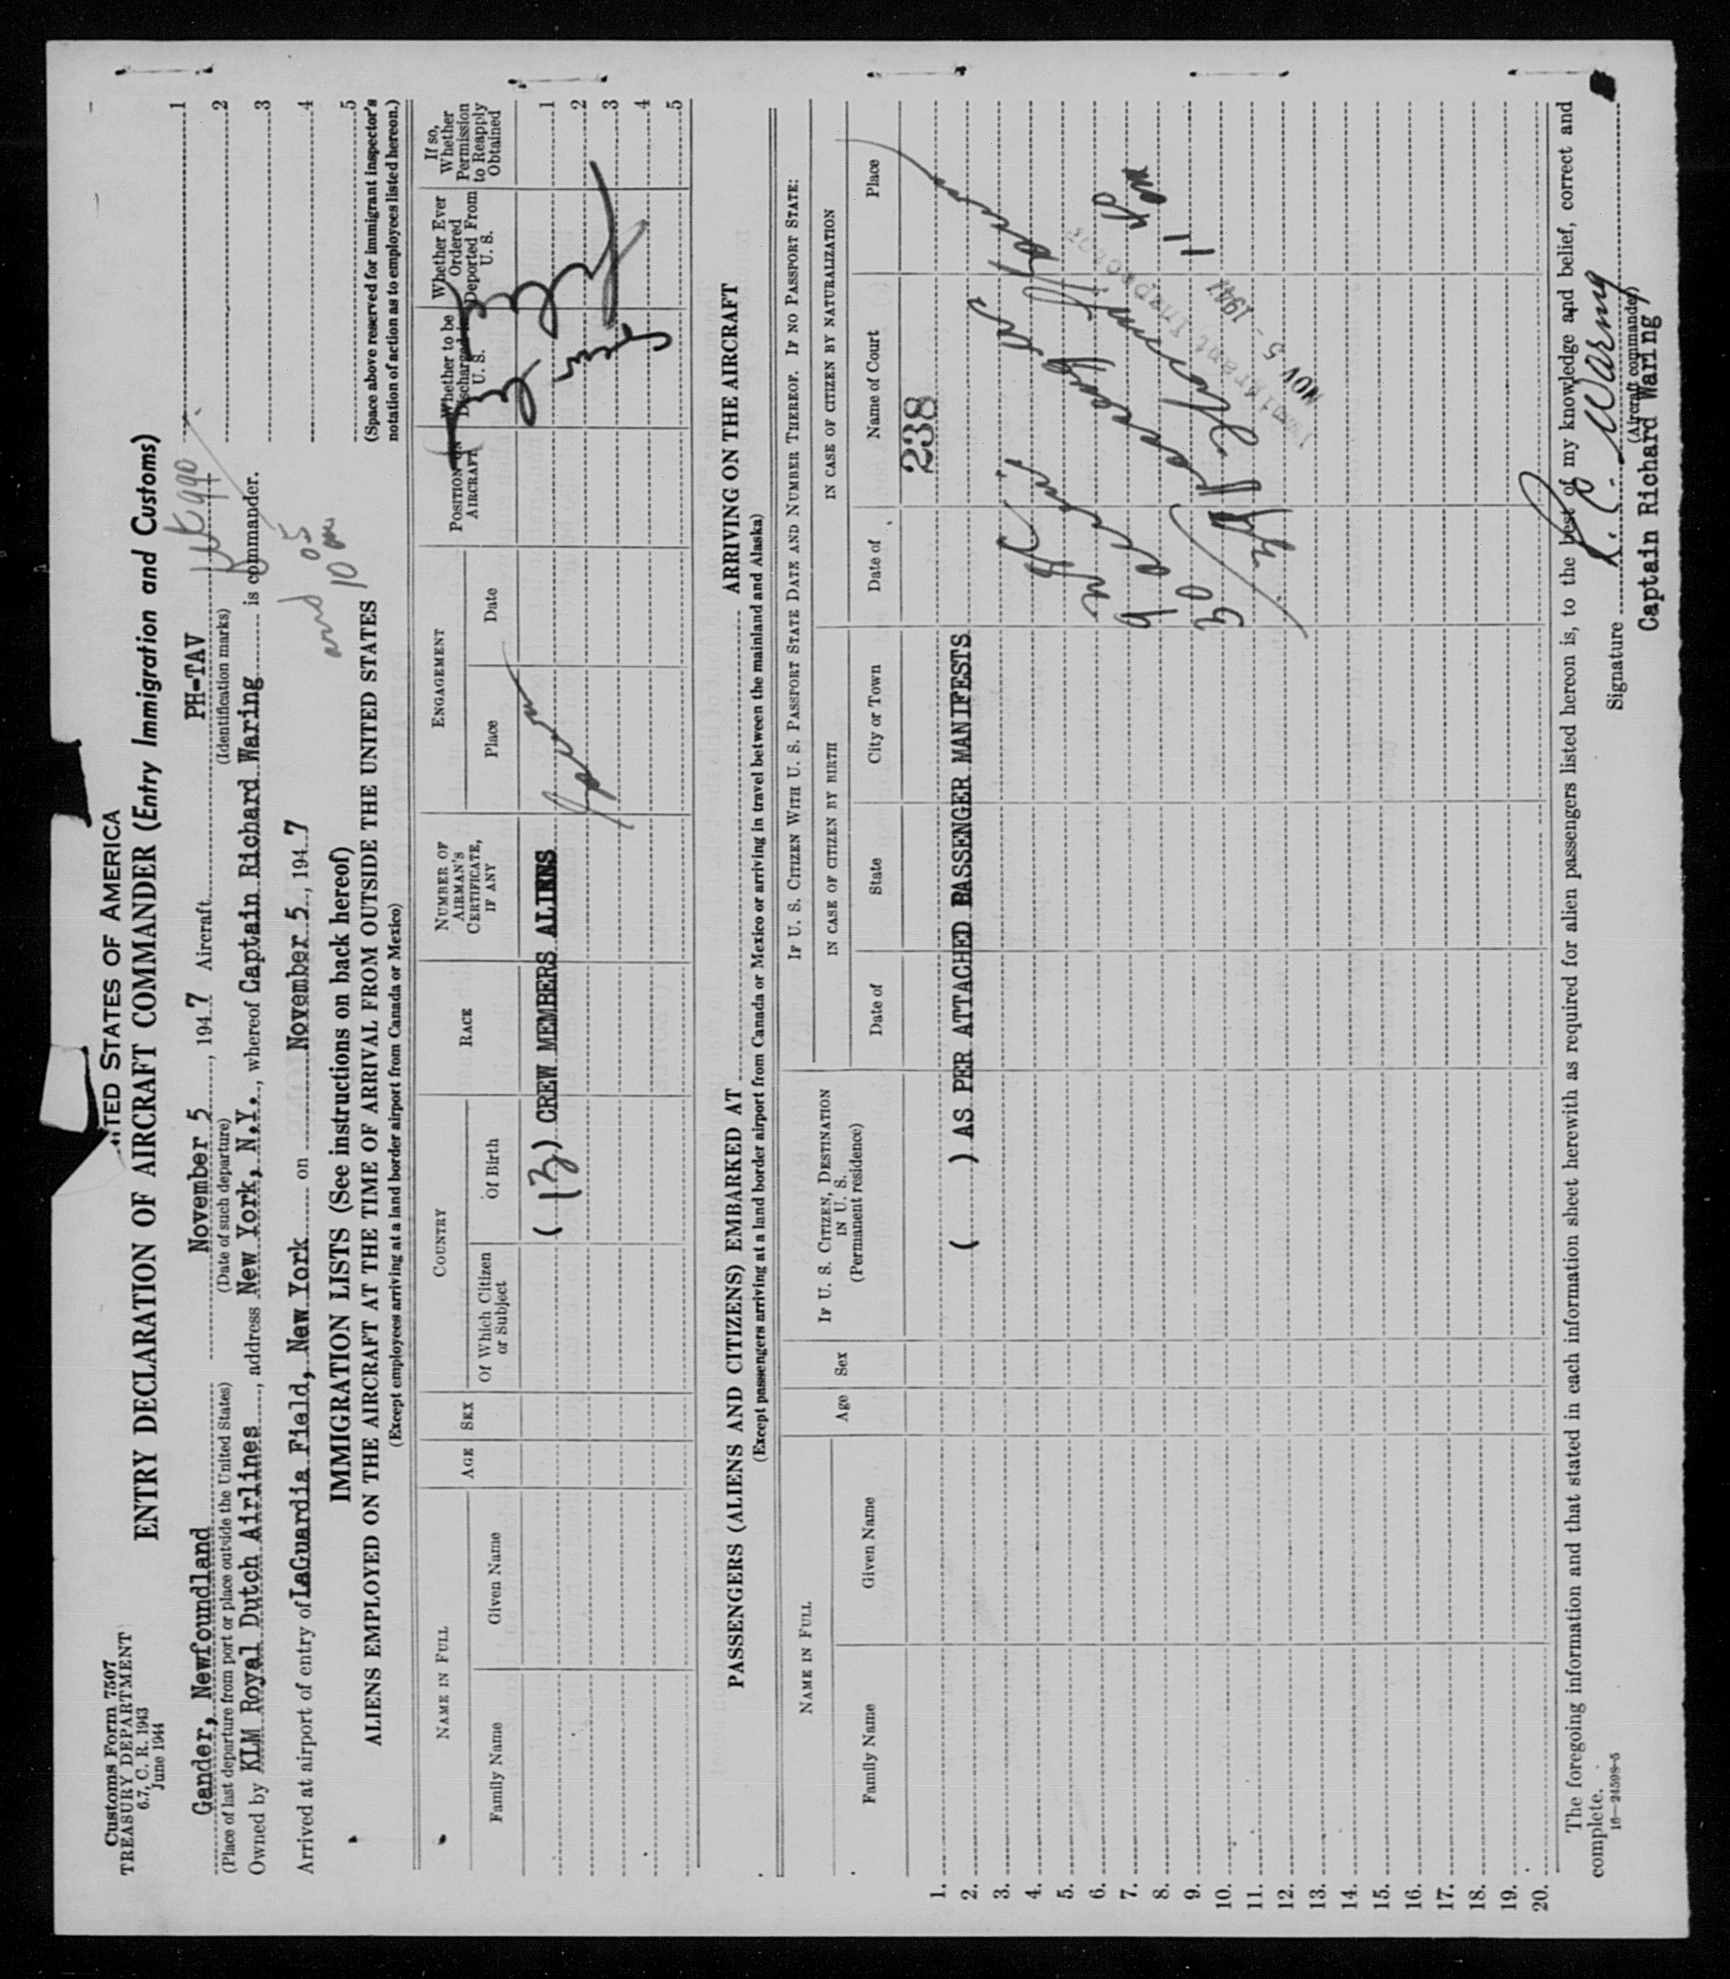 Customs Form 7507
TREASURY DEPARTMENT
6.7, C. R. 1943
June 1944
ITED STATES OF AMERICA
ENTRY DECLARATION OF AIRCRAFT COMMANDER (Entry Immigration and Customs)
Gander, Newfoundland November 5, 1947 Aircraft PH-TAV
(Place of last departure from port or place outside the United States) (Date of such departure) (Identification marks)
Owned by KLM Royal Dutch Airlines, address New York, N.Y., whereof Captain Richard Waring is commander.
Arrived at airport of entry of LaGuardia Field, New York on November 5, 1947
arrd 10 05 am
1
2
3
4
5
(Space above reserved for immigrant inspector's
notation of action as to employees listed hereon.)
IMMIGRATION LISTS (See instructions on back hereof)
ALIENS EMPLOYED ON THE AIRCRAFT AT THE TIME OF ARRIVAL FROM OUTSIDE THE UNITED STATES
(Except employees arriving at a land border airport from Canada or Mexico)
NAME IN FULL
Family Name
Given Name
AGE
SEX
COUNTRY
Of Which Citizen or Subject
Of Birth
RACE
NUMBER OF AIRMAN'S CERTIFICATE, IF ANY
ENGAGEMENT
Place
Date
POSITION ON AIRCRAFT
Whether to be Discharged in U. S.
Whether Ever Ordered Deported From U. S.
If so, Whether Permission to Reapply Obtained
(13) CREW MEMBERS ALIENS
1
2
3
4
5
PASSENGERS (ALIENS AND CITIZENS) EMBARKED AT ARRIVING ON THE AIRCRAFT
(Except passengers arriving at a land border airport from Canada or Mexico or arriving in travel between the mainland and Alaska)
NAME IN FULL
Family Name
Given Name
Age
Sex
IF U. S. CITIZEN, DESTINATION IN U. S.
(Permanent residence)
IF U. S. CITIZEN WITH U. S. PASSPORT STATE DATE AND NUMBER THEREOF. IF NO PASSPORT STATE:
IN CASE OF CITIZEN BY BIRTH
IN CASE OF CITIZEN BY NATURALIZATION
Date of
State
City or Town
Date of
Name of Court
Place
238
1.
2. ( ) AS PER ATTACHED PASSENGER MANIFESTS
3.
4.
5.
6.
7.
8.
9.
10.
11.
12.
13.
14.
15.
16.
17.
18.
19.
20.
Immigrant Inspector
NOV 5 - 1947
The foregoing information and that stated in each information sheet herewith as required for alien passengers listed hereon is, to the best of my knowledge and belief, correct and
complete.
16—24598-5
Signature R. C. Waring
(Aircraft commander)
Captain Richard Waring